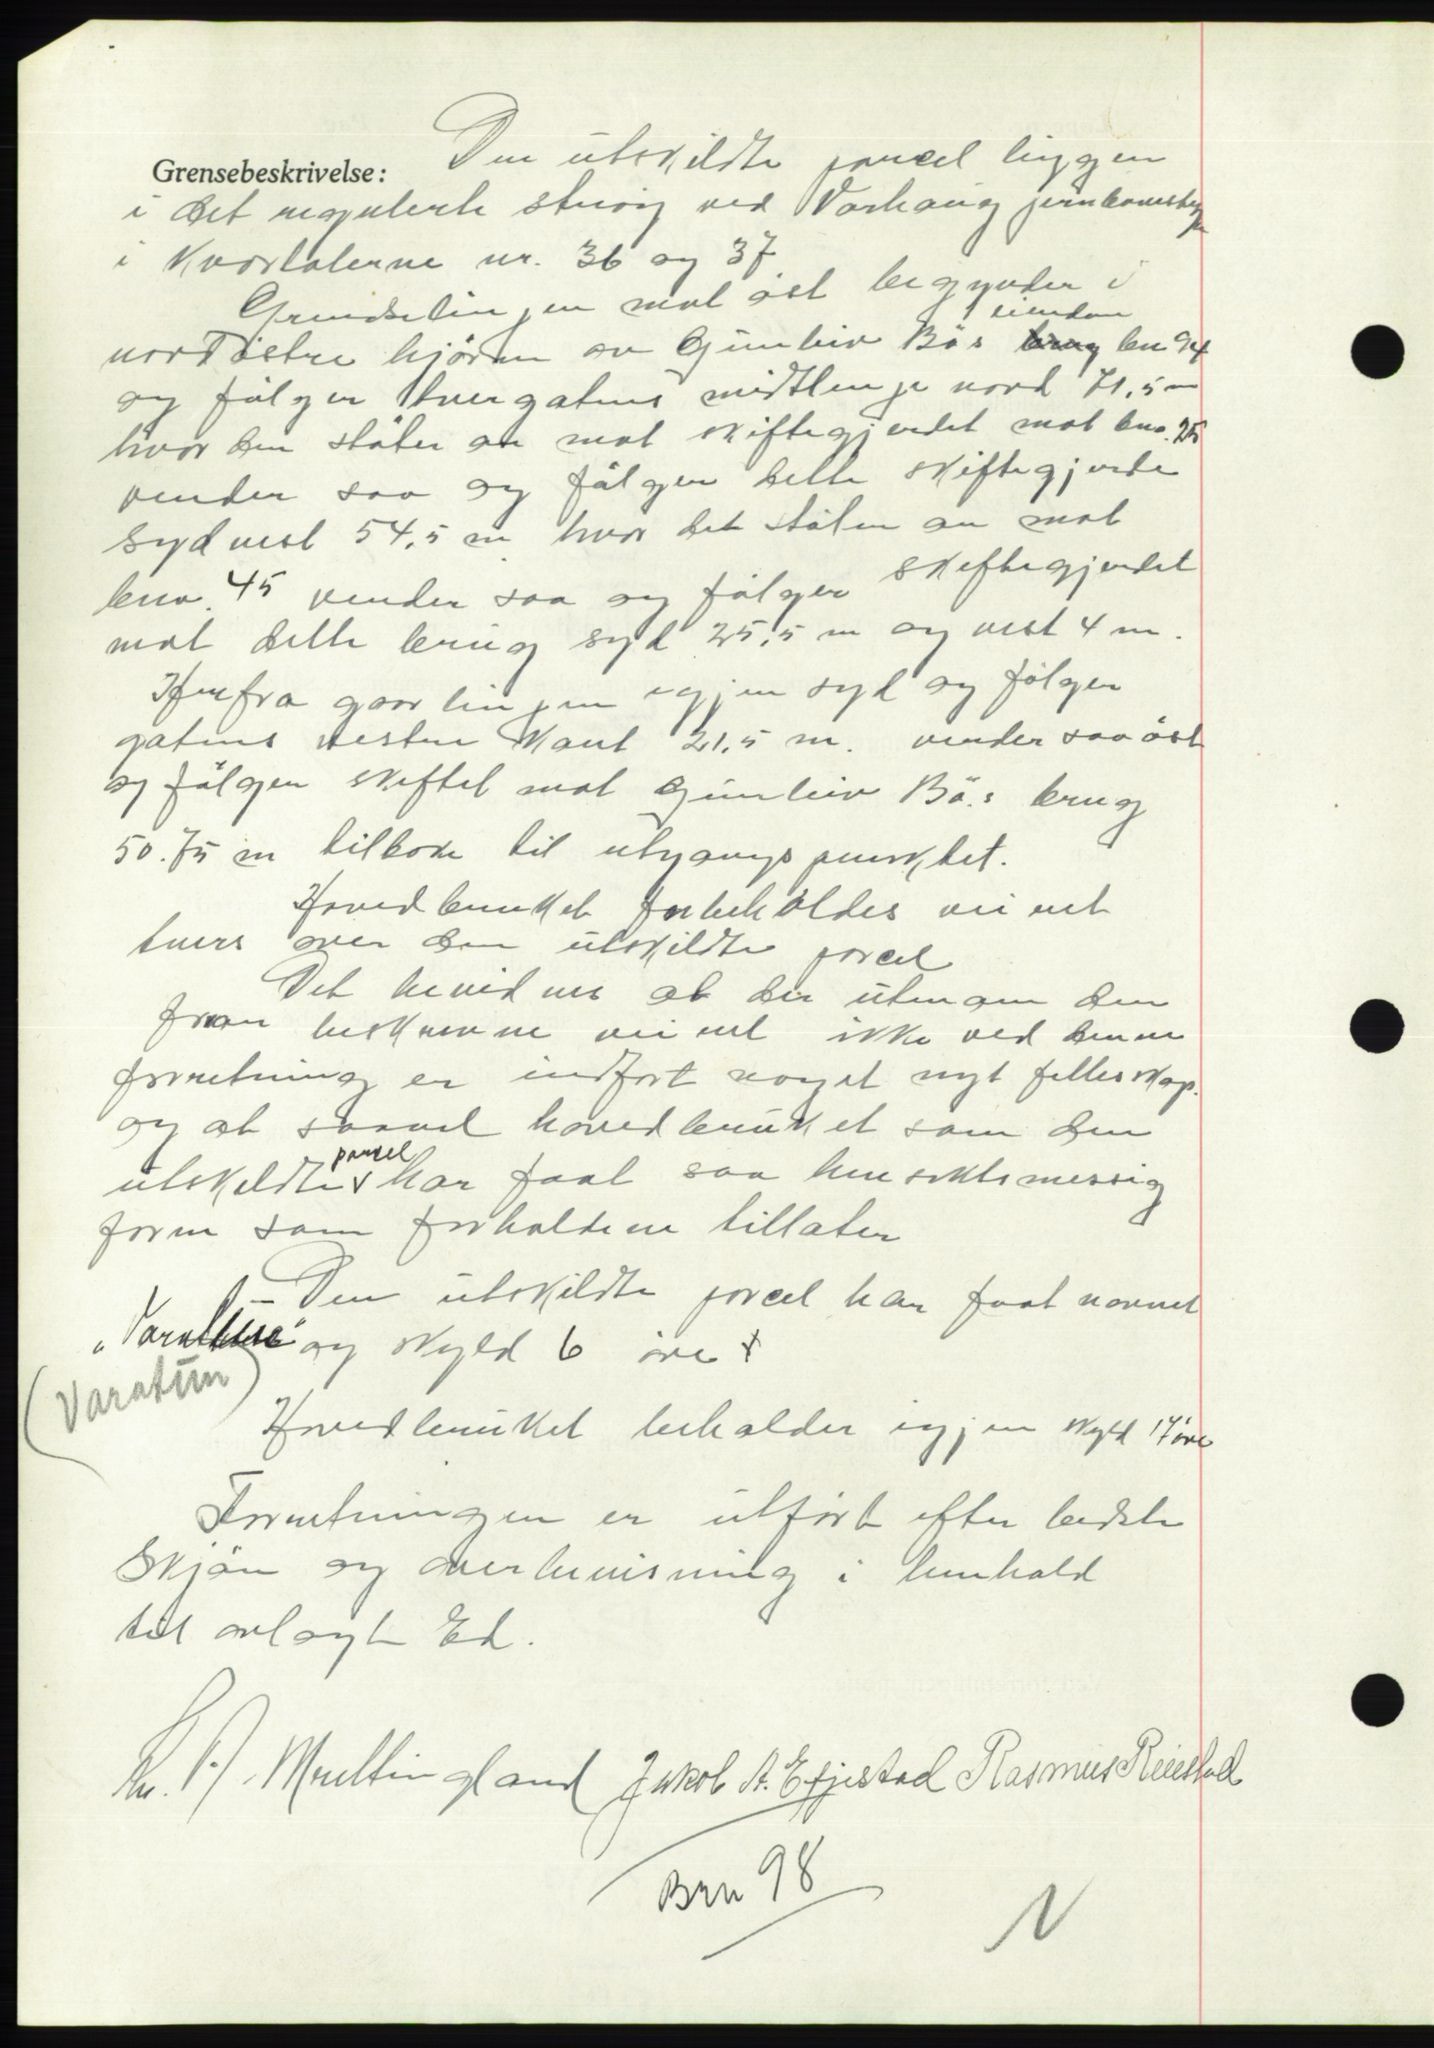 Grensebeskrivelse: Den utskildte parcel ligger
i det regulerte strøg ved Varhaug
i Kvartalerne nr. 36 og 37
Grændselinjen mot øst begynder i
eiendom
nordøstre hjørne av Gunleiv Bö's brug bn 94
og følger tvergatens midtlinje nord 71,5 m
hvor den støter an mot skiftegjerdet mot bno. 25
vender saa og følger dette skiftegjerde
syd vest 54,5 m hvor det støter an mot
bno. 45 vender saa og følger skiftegjerdet
mot dette brug syd 25,5 m og vest 4 m.
Herfra gaar linjen igjen syd og følger
gatens vestre kant 21,5 m. vender saa øst
og følger skiftet mot Gunleiv Bö.s brug
50.75 m tilbake til utgangspunktet.
Hovedbruket forbeholdes veiret
tvers over den utskildte parcel
Det bevidnes at der utenom den
foran beskrevne veiret ikke ved denne
forretning er indført noget nyt felleskap.
og at saavel hovedbruket som den
parcel
utskildte har faat saa hensiktsmessig
form som forholdene tillater
Den utskildte parcel har faat navnet
og skyld 6 øre
(Varatun)
Hovedbruket beholder igjen skyld 17 øre
Forretningen er utført efter bedste
Skjøn og overbevisning i henhold
til avlagt Ed.
Jakob A. Egjestad Rasmus Reiestad
Brn 98
N